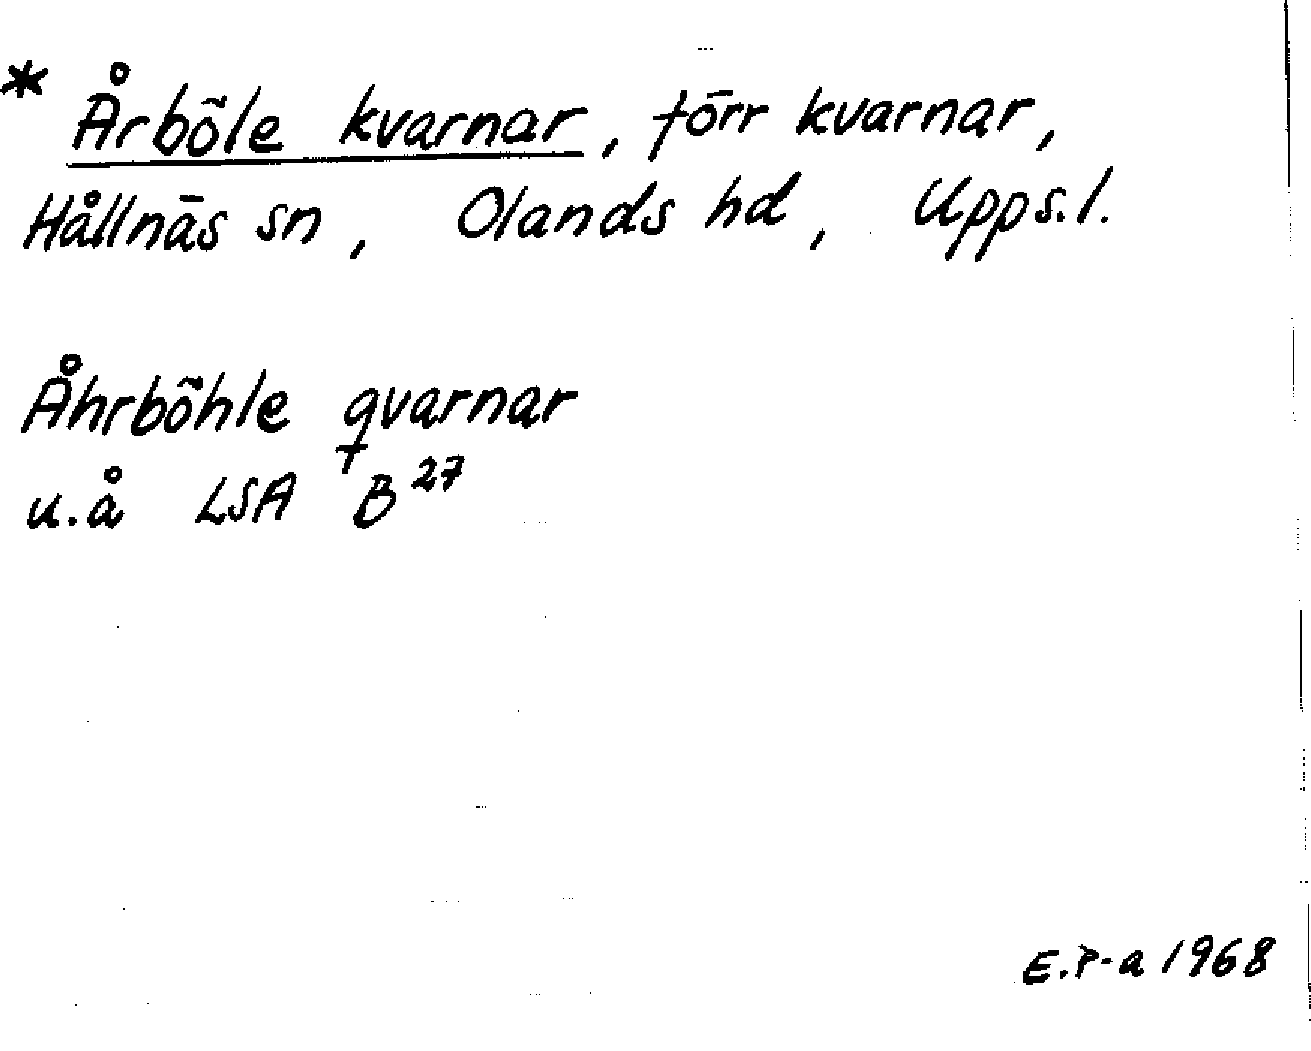 * Årböle kvarnar, förr kvarnar,
Hållnäs sn, Olands hd, Upps.l.
Åhrböhle qvarnar
u.å LSA B 27
E.P-a 1968